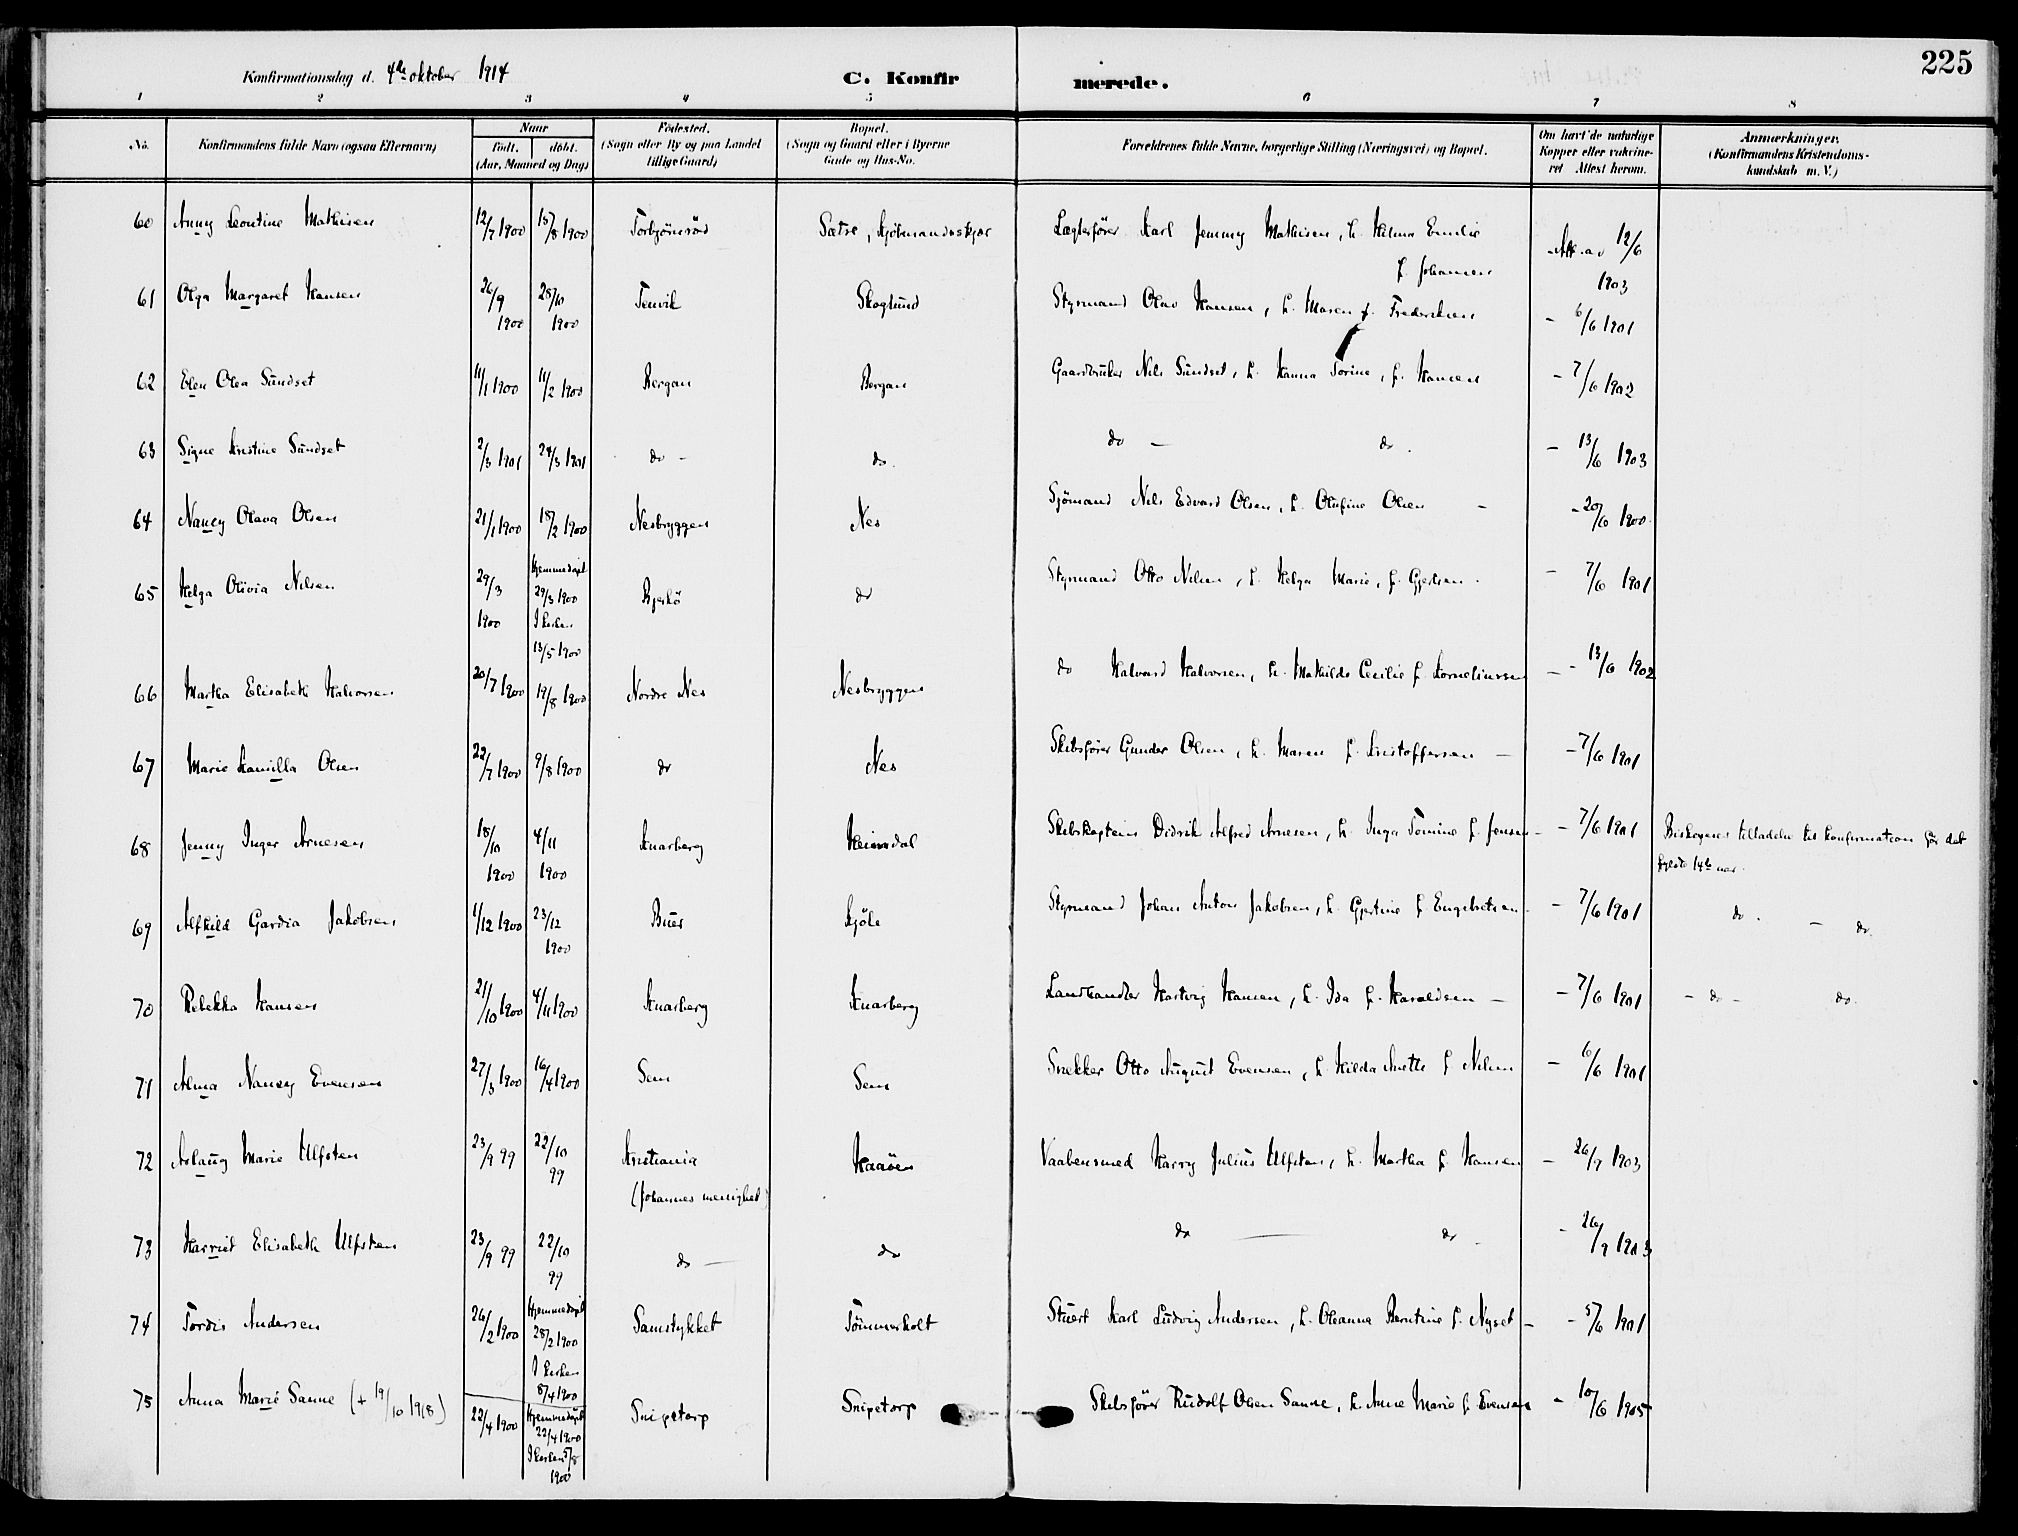 225
Konfirmationsdag d. 4de oktober 1914 C. Konfirmerede.
1 2 3 4 5 6 7 8
No. Konfirmandens fulde Navn (ogsaa Efternavn) Naar født. døbt. (Aar, Maaned og Dag) Fødested. (Sogn eller By og paa Landet tillige Gaard) Bopæl. (Sogn og Gaard eller i Byerne Gade og Hus-No. Forældrenes fulde Navne, borgerlige Stilling (Næringsvei) og Bopæl. Om havt de naturlige Kopper eller vakcineret Attest herom. Anmærkninger. (Konfirmandens Kristendomskundskab m. V.)
60 Anny Leontine Mathisen 12/7 1900 15/8 1900 Torbjörnröd Sætre, Lægterförer Karl Jemmy Mathisen, h. Hilma Emilie f. Johansen Att. av 12/6 1903
61 Olga Margaret Hansen 26/9 1900 28/10 1900 Tenvik Skoglund Styrmand Olav Hansen, h. Maren f. Fredriksen - 6/6 1901
62 Elen Olea Sundset 11/1 1900 11/2 1900 Bergan Bergan Gaardbruker Nils Sundset, h. Hanna Torine, f. Hansen - 7/6 1902
63 Signe Kristine Sundset 2/3 1901 24/3 1901 do - do. do - do. - 13/6 1903
64 Nancy Olava Olsen 21/1 1900 18/2 1900 Nesbryggen Nes Sjömand Nils Edvard Olsen, h. Olufine Olsen - - 20/6 1900.
65 Helga Olivia Nilsen 29/3 1900 Hjemmedøpt 29/3 1900 I kirken 13/5 1900 Bjerkö do Styrmand Otto Nilsen, h. Helga Marie, f. Gjertsen. - 7/6 1901
66 Martha Elisabeth Halvorsen 20/7 1900 19/8 1900 Nordre Nes Nesbryggen do Halvard Halvorsen, h. Mathilde Cecilie f. Korneliussen - - 13/6 1902
67 Marie Kamilla Olsen 22/7 1900 9/8 1900 do Nes Skibsförer Gunder Olsen, h. Maren f. Kristoffersen - - 7/6 1901
68 Jenny Inger Arnesen 18/10 1900 4/11 1900 Knarberg Heimdal Skibskaptein Didrik Alfred Arnesen, h. Inga Tomine f. Jensen - - 7/6 1901 Biskopens tilladelse til konfirmation för det fyldte 14de aar.
69 Alfhild Gardia Jakobsen 1/12 1900 23/12 1900 Buer Kjöle Styrmand Johan Anton Jakobsen, h. Gjertine f. Engebretsen - - 7/6 1901 do. - do.
70 Rebekka Hansen 21/10 1900 4/11 1900 Knarberg Knarberg Landhandler Hartvig Hansen, h. Ida f. Haraldsen - - 7/6 1901 - do - do.
71 Alma Nancy Evensen 27/3 1900 16/4 1900 Sem Sem Snekker Otto August Evensen, h. Hilda Anette f. Nilsen - 6/6 1901
72 Aslaug Marie Ulfsten 23/9 99 22/10 99 Kristiania (Johannes menighet) Haaöen Vaabensmed Harry Julius Ulfsten, h. Martha f. Hansen - 26/9 1903
73 Harriet Elisabeth Ulfsten 23/9 99 22/10 99 do - do do - do - - 26/9 1903
74 Tordis Andersen 26/2 1900 Hjemmedøpt 28/2 1900 I kirken 8/4 1900 Samstykket Tömmerholt Stuert Karl Ludvig Andersen, h. Oleanna Berntine f. Nyset - - 5/6 1901
75 Anna Marie Sanne (+ 19/10 1918) 22/4 1900 Hjemmedøpt 22/4 1900 I kirken 5/8 1900 Snipetorp Snipetorp Skibsförer Rudolf Olsen Sanne, h. Anne Marie f. Evensen - 10/6 1905